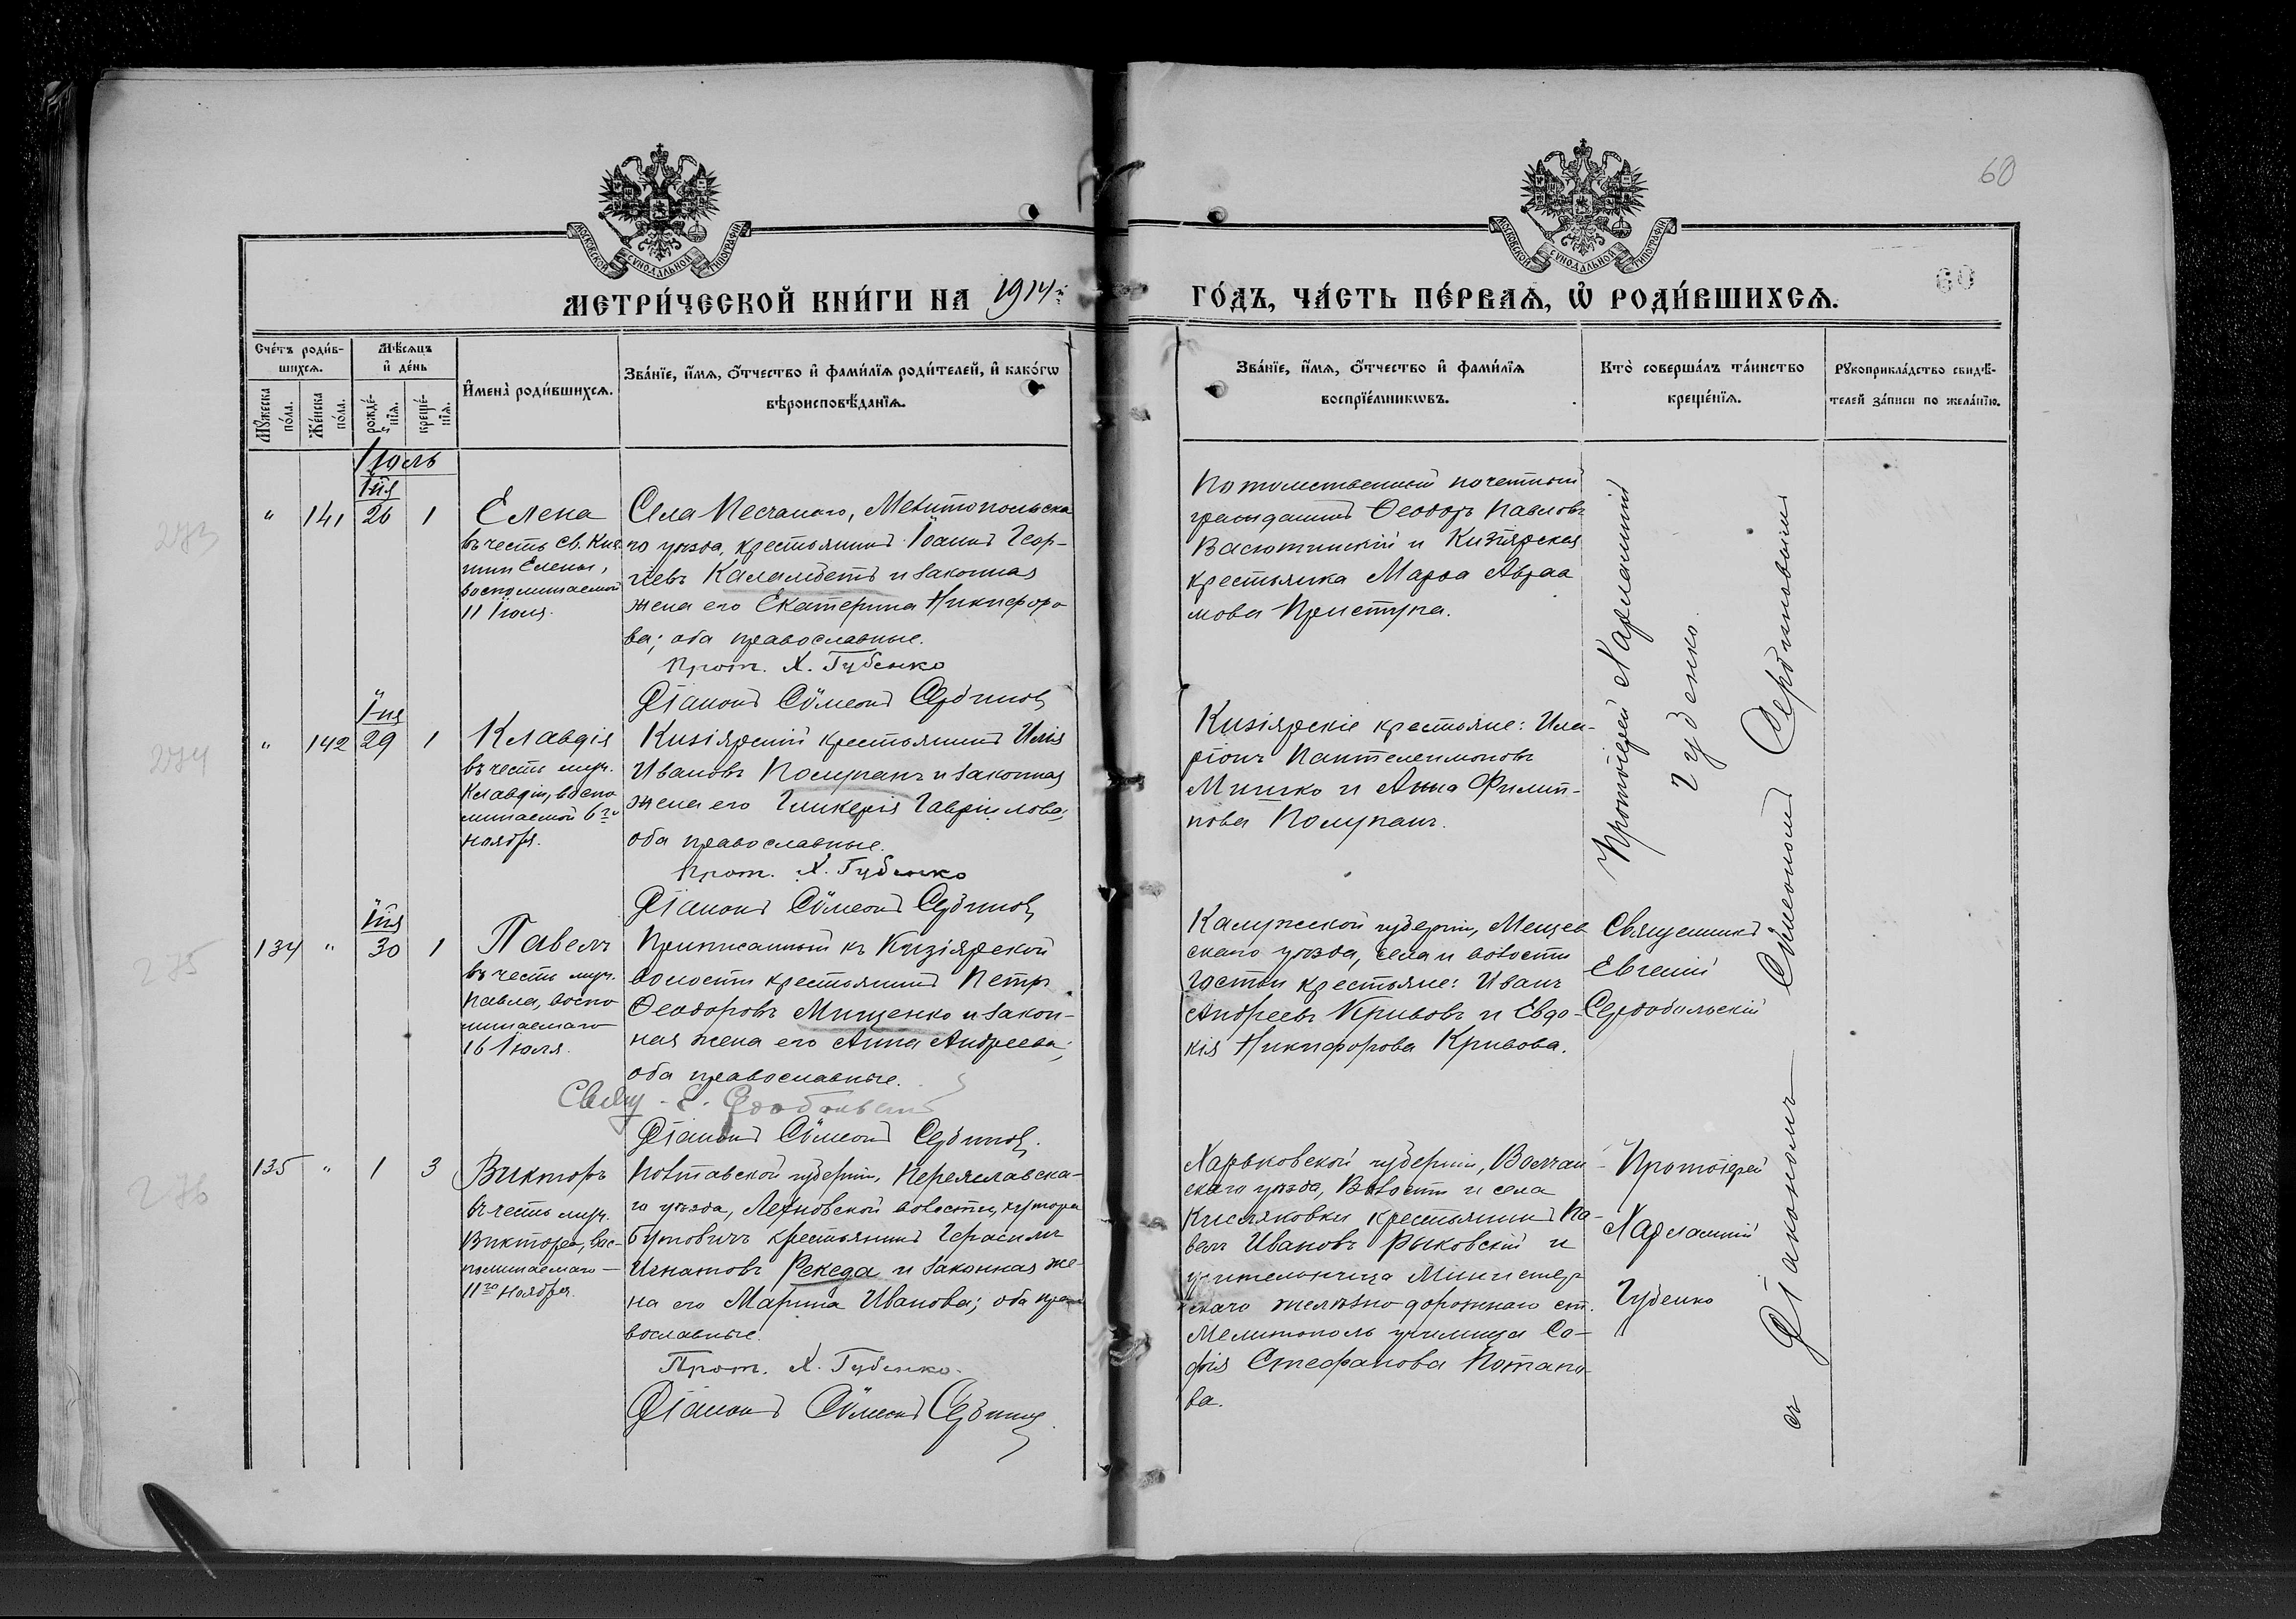 60
МОСКОВСКОЙ СѴНОДАЛЬНОЙ ТИПОГРАФІИ
МОСКОВСКОЙ СѴНОДАЛЬНОЙ ТИПОГРАФІИ
60
МЕТРИ́ЧЕСКОЙ КНИ́ГИ НА 1914й
ГО́ДЪ, ЧА́СТЬ ПЕ́РВАѦ, Ѡ҆ РОДИ́ВШИХСѦ.
Сче́тъ роди́в-
шихсѧ.
Мꙋ́жеска
по́ла.
Же́нска
по́ла.
Мѣ́сѧцъ
и҆ де́нь
рожде́-
нїѧ.
креще́-
нїѧ.
И҆мена̀ роди́вшихсѧ.
Зва́нїе, и҆́мѧ, ѻ҆́тчество и҆ фами́лїѧ роди́телей, и҆ како́гѡ
вѣроисповѣ́данїѧ.
Зва́нїе, и҆́мѧ, ѻ҆́тчество и҆ фами́лїѧ
воспрїе́мникѡвъ.
Кто̀ соверша́лъ та́инство
креще́нїѧ.
Рꙋкоприкла́дство свидѣ́-
телей за́писи по жела́нїю.
Іюль
273
Іюня
" 141 26 1
Елена
въ честь св. Кня-
гини Елены,
воспоминаемой
11 Іюля.
Села Песчанаго, Мелитопольска-
го уѣзда, крестьянинъ Іоаннъ Геор-
гіевъ Каламбетъ и законная
жена его Екатерина Никифоро-
ва; оба православные.
Прот. Х. Губенко
Діаконъ Сѵмеонъ Сербиновъ
Потомственный почетный
гражданинъ Ѳеодоръ Павловъ
Васютинскій и Кизіярская
крестьянка Марѳа Авраа
мова Приступа.
Протоіерей Харлампій
Губенко
съ Діакономъ Сѵмеономъ Сербиновымъ
274
Іюня
" 142 29 1
Клавдія
въ честь муч.
Клавдіи, воспо
минаемой 6го
ноября.
Кизіярскій крестьянинъ Илія
Ивановъ Полупанъ и законная
жена его Гликерія Гавріилова;
оба православные.
Прот. Х. Губенко
Діаконъ Сѵмеонъ Сербиновъ
Кизіярскіе крестьяне: Ила-
ріонъ Пантелеимоновъ
Мишко и Анна Филип-
пова Полупанъ.
275
Іюня
134 " 30 1
Павелъ
въ честь муч.
Павла, воспо
минаемаго
16 Іюля.
Приписанный къ Кизіярской
волости крестьянинъ Петръ
Ѳеодоровъ Мищенко и закон-
ная жена его Анна Андреева;
оба православные.
Свящ. Е. Сердобольскій
Діаконъ Сѵмеонъ Сербиновъ.
Калужской губерніи, Мещев
скаго уѣзда, села и волости
Гостьи крестьяне: Иванъ
Андреевъ Кривовъ и Евдо-
кія Никифорова Кривова.
Священникъ
Евгеній
Сердобольскій
276
135 " 1 3
Викторъ
въ честь муч.
Виктора, вос-
поминаемаго
11го Ноября.
Полтавской губерніи, Переяславска-
го уѣзда, волости, хутора
крестьянинъ Герасимъ
Игнатовъ Рекеда и законная же-
на его Марина Иванова; оба пра-
вославные.
Прот. Х. Губенко.
Діаконъ Сѵмеонъ Сербиновъ
Харьковской губерніи, Волчан-
скаго уѣзда, Волости и села
крестьянинъ Па-
велъ Ивановъ Рыковскій и
учительница Министер
скаго желѣзно-дорожнаго ст.
Мелитополь училища Со-
фія Стефанова Потапо-
ва.
Протоіерей
Харлампій
Губенко